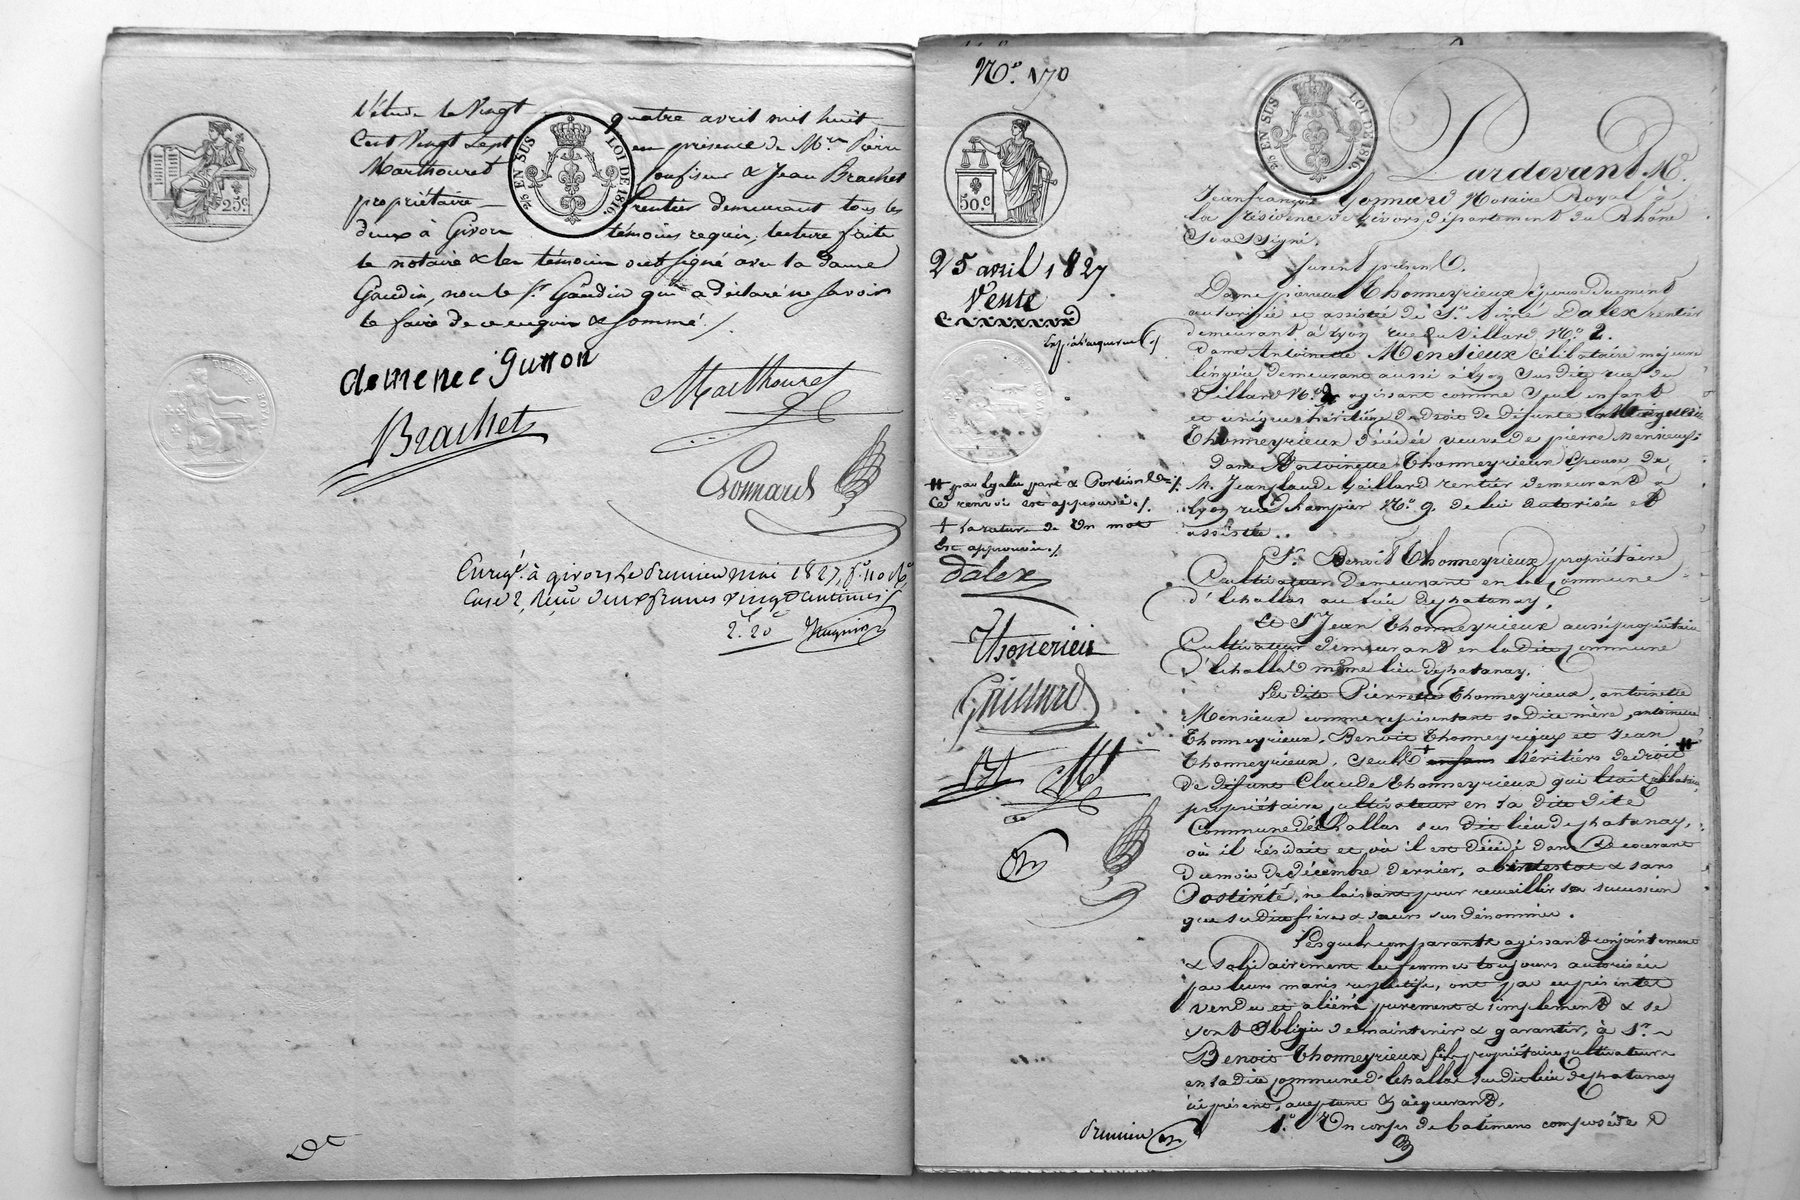 l'étude le Vingt quatre avril mil huit
Cent Vingt Sept en présence de M.rs Pierre
Marthouret Confiseur & Jean Brachet
propriétaire rentier demeurant tous les
deux à Givors témoins requis, lecture faite
le notaire & les témoins ont signé avec la dame
Gaudin, non le S.r Gaudin qui a déclaré ne savoir
le faire de ce enquis & sommé ./.
25 EN SUS LOI DE 1816
25 c
Marthouret
Brachet
Gonnard
Enreg.é à givors le premier mai 1827, f.o 110 r.o
Case 2, reçu deux francs vingt centimes
2.f 20.c
N.o 170
50.c
25 EN SUS LOI DE 1816
25 avril 1827
Vente
# par égales parts & portions ./.
Ce renvoi est approuvé ./.
+ la rature de Un mot
est approuvée ./.
Dalex
Thonerieu
Gaillard
Pardevant M.e
Jean françois Gonnard Notaire Royal à
la résidence de Givors département du Rhône
Soussigné,
furent présents.
Dame pierrette Thonneyrieux épouse duement
autorisée et assistée de S.r Aimé Dalex rentier
demeurant à Lyon rue du Villard N.o 2.
Dame Antoinette Mensieux célibataire majeure
lingère demeurant aussi à Lyon susdite rue du
Villard N.o 2 agissant comme seul enfant
et unique héritière de droit de défunte
Thonneyrieux décédée veuve de pierre Mensieux.
Dame Antoinette Thonneyrieux épouse de
M. Jean Claude Gaillard rentier demeurant à
Lyon rue Champier N.o 9. de lui autorisée et
assistée.
S.r Benoit Thonneyrieux propriétaire
Cultivateur demeurant en la Commune
d'Echallas au lieu de chatanay,
Et S.r Jean Thonneyrieux aussi propriétaire
Cultivateur demeurant en la dite commune
d'Echallas même lieu de chatanay.
La dite Pierrette Thonneyrieux, antoinette
Mensieux comme représentant sa dite mère, antoinette
Thonneyrieux, Benoit Thonneyrieux et Jean
Thonneyrieux, seuls + enfans héritiers de droit #
de défunt Claude Thonneyrieux qui était
propriétaire cultivateur en la dite dite
Commune d'Echallas sus dit lieu de chatanay,
où il résidait et où il est décédé dans le courant
du mois de décembre dernier, abintestat & sans
Postérité, ne laissant pour recueillir sa succession
que sesdits frères & sœurs sus dénommés.
Lesquels comparants agissant conjointement
& solidairement les femmes toujours autorisées
par leurs maris respectifs, ont par ces présentes
vendu et aliéné purement & simplement & se
sont obligés de maintenir & garantir, à S.r
Benoit Thonneyrieux fils propriétaire cultivateur
en la dite commune d'Echallas susdit lieu de chatanay
ici présent, acceptant & acquérant,
1.o Un corps de bâtimens composé de
premier